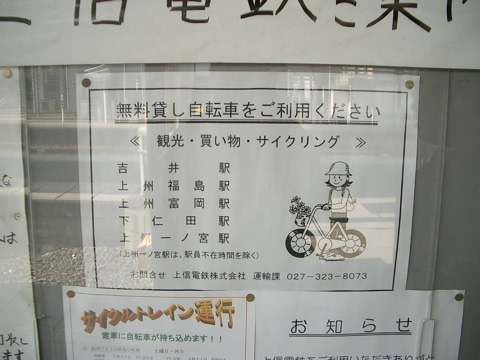 上信電鉄ご案内
無料貸し自転車をご利用ください
≪ 観光・買い物・サイクリング ≫
吉井駅
上州福島駅
上州富岡駅
下仁田駅
上州一ノ宮駅
(上州一ノ宮駅は、駅員不在時間を除く)
お問合せ 上信電鉄株式会社 運輸課 027-323-8073
サイクルトレイン運行
電車に自転車が持ち込めます!!
お知らせ
上信電鉄をご利用いただきありがと